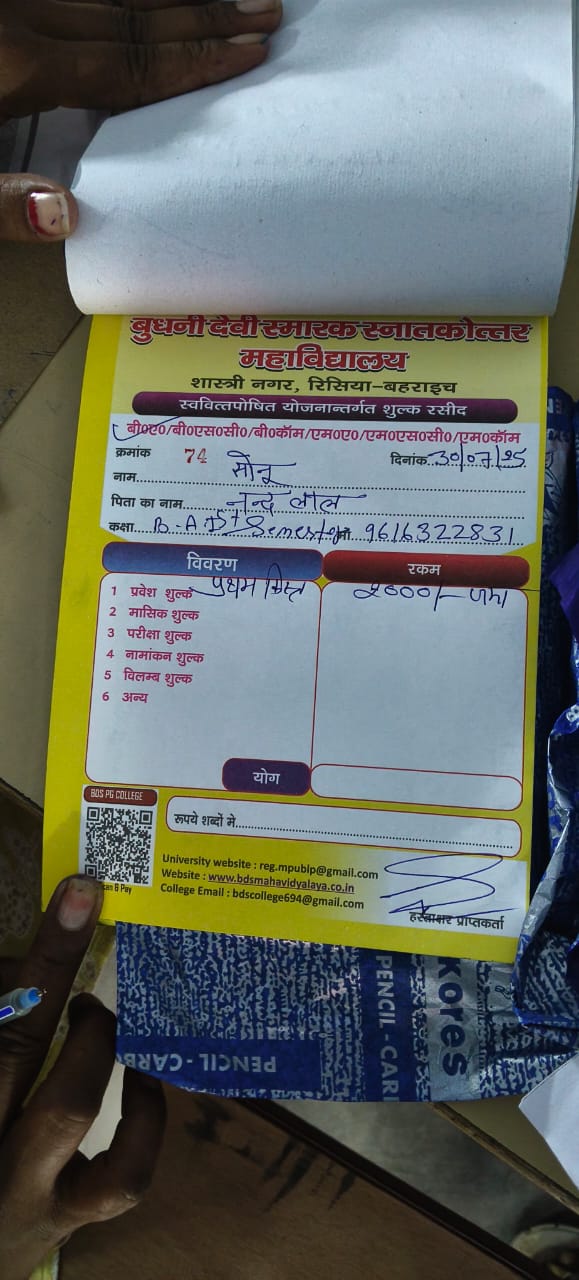 बुधनी देवी स्मारक स्नातकोत्तर
महाविद्यालय
शास्त्री नगर, रिसिया-बहराइच
स्ववित्तपोषित योजनान्तर्गत शुल्क रसीद
बी०ए०/बी०एस०सी०/बी०कॉम/एम०ए०/एम०एस०सी०/एम०कॉम
क्रमांक 74 दिनांक 30/07/25
नाम सोनू
पिता का नाम नन्द लाल
कक्षा B-A Ist Semester मो 9616322831
विवरण रकम
1 प्रवेश शुल्क प्रथम किस्त 2000/- जमा
2 मासिक शुल्क
3 परीक्षा शुल्क
4 नामांकन शुल्क
5 विलम्ब शुल्क
6 अन्य
योग
BDS PG COLLEGE
रूपये शब्दों मे
& Pay
University website : reg.mpublp@gmail.com
Website : www.bdsmahavidyalaya.co.in
College Email : bdscollege694@gmail.com
हस्ताक्षर प्राप्तकर्ता
kores
PENCIL - CAR
PENCIL - CARB